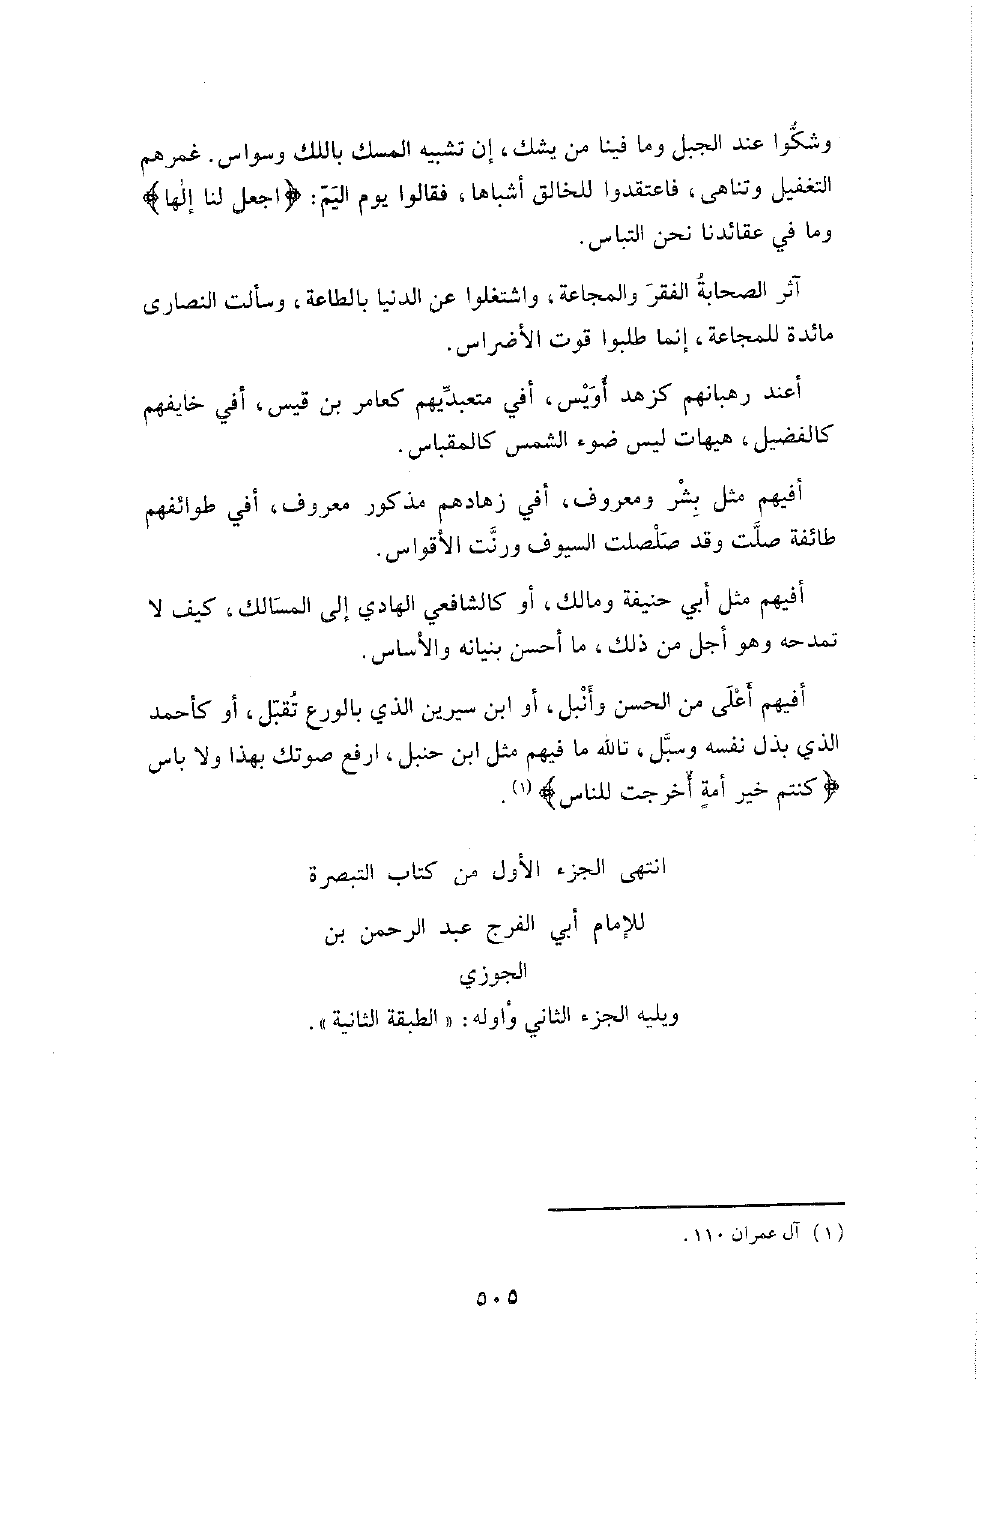 وشكُّوا عند الجبل وما فينا من يشك، إن تشبيه المسك باللك وسواس. غمرهم
التغفيل وتناهى، فاعتقدوا للخالق أشباها، فقالوا يوم اليَمّ: ﴿اجعل لنا إلٰها﴾
وما في عقائدنا نحن التباس.
آثر الصحابةُ الفقرَ والمجاعة، واشتغلوا عن الدنيا بالطاعة، وسألت النصارى
مائدة للمجاعة، إنما طلبوا قوت الأضراس.
أعند رهبانهم كزهد أُوَيْس، أفي متعبدِّيهم كعامر بن قيس، أفي خايفهم
كالفضيل، هيهات ليس ضوء الشمس كالمقباس.
أفيهم مثل بِشْر ومعروف، أفي زهادهم مذكور معروف، أفي طوائفهم
طائفة صلَّت وقد صَلْصلت السيوف ورنَّت الأقواس.
أفيهم مثل أبي حنيفة ومالك، أو كالشافعي الهادي إلى المسالك، كيف لا
تمدحه وهو أجل من ذلك، ما أحسن بنيانه والأساس.
أفيهم أَعْلَى من الحسن وأَنْبل، أو ابن سيرين الذي بالورع تُقبّل، أو كأحمد
الذي بذل نفسه وسبَّل، تالله ما فيهم مثل ابن حنبل، ارفع صوتك بهذا ولا باس
﴿كنتم خير أمةٍ أُخرجت للناس﴾ (١).
انتهى الجزء الأول من كتاب التبصرة
للإمام أبي الفرج عبد الرحمن بن
الجوزي
ويليه الجزء الثاني وأوله: « الطبقة الثانية ».
(١) آل عمران ١١٠.
٥٠٥